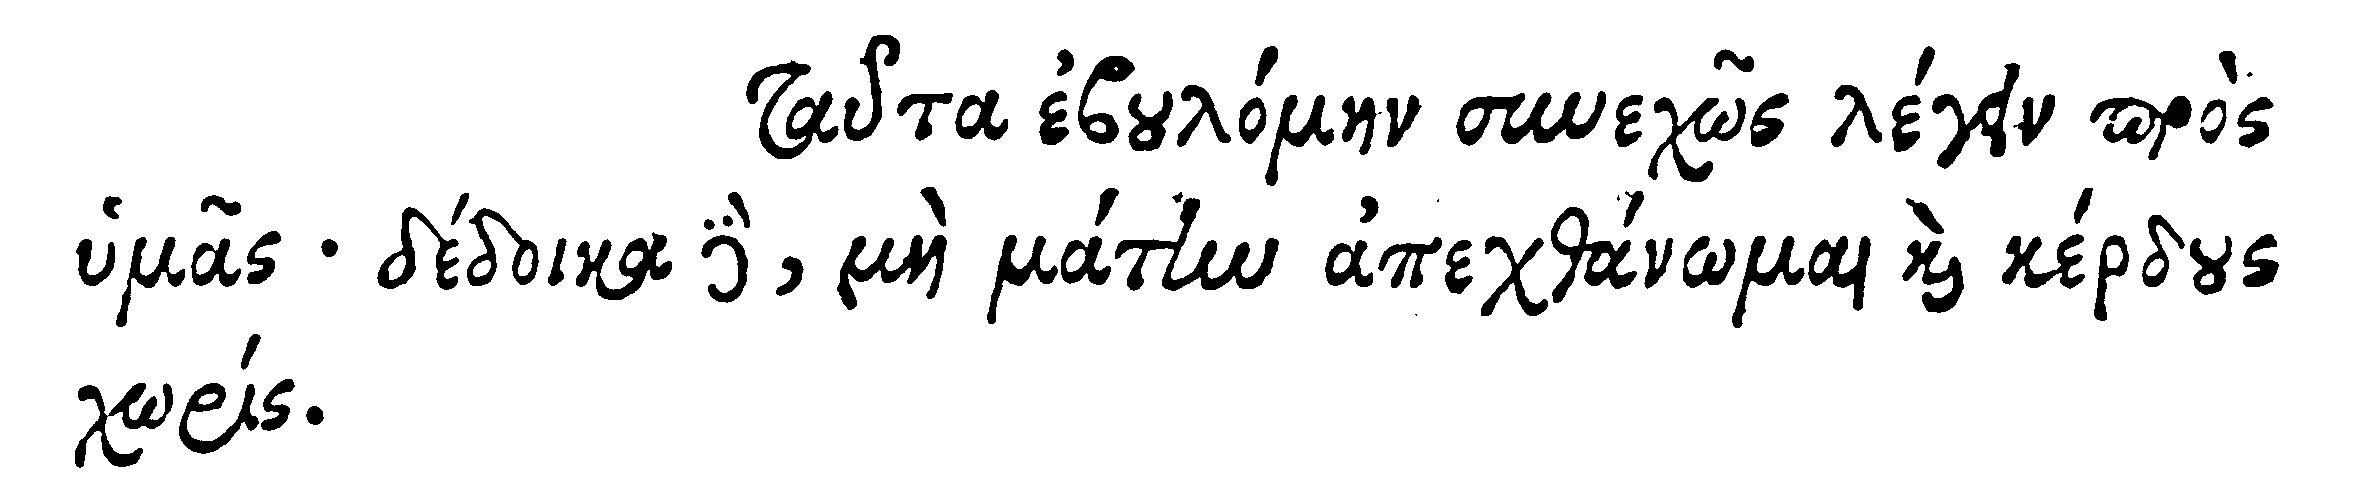 Ταῦτα ἐβȣλόμην συνεχῶς λέγειν πρὸς
ὑμᾶς · δέδοικα δὲ, μὴ μάτην ἀπεχθάνωμαι καὶ κέρδȣς
χωρίς.